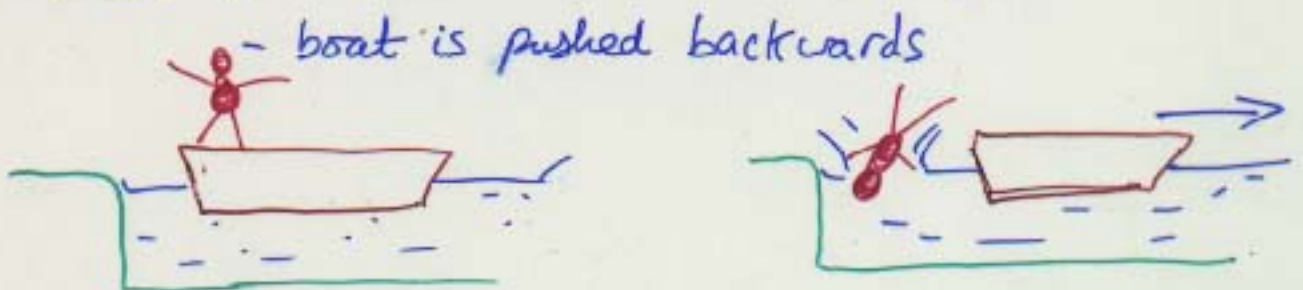 - boat is pushed backwards